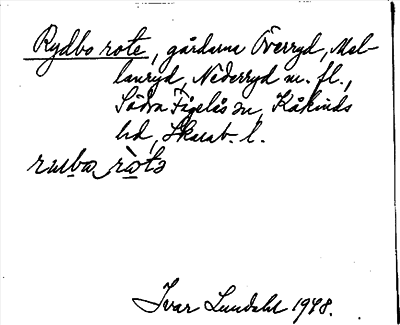 Rydbo rote, gårdarna Överryd, Mel-
lanryd, Nederryd m. fl.,
Södra Fågelås sn, Kåkinds
hd, Skarab. l.
rὼtə
Ivar Lundahl 1948.